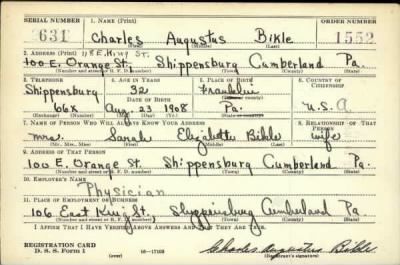 SERIAL NUMBER 1. NAME (Print) ORDER NUMBER
631 Charles Augustus Bikle 1552
(First) (Middle) (Last)
2. ADDRESS (Print) 118 E. King St.
100 E. Orange St., Shippensburg Cumberland Pa.
(Number and street or R. F. D. number) (Town) (County) (State)
3. TELEPHONE 4. AGE IN YEARS 5. PLACE OF BIRTH 6. COUNTRY OF CITIZENSHIP
Shippensburg 32 Franklin
DATE OF BIRTH (Town or county)
66X Aug 23 1908 Pa. U.S.A
(Exchange) (Number) (Mo.) (Day) (Yr.) (State or country)
7. NAME OF PERSON WHO WILL ALWAYS KNOW YOUR ADDRESS 8. RELATIONSHIP OF THAT PERSON
Mrs. Sarah Elizabeth Bikle wife
(Mr., Mrs., Miss) (First) (Middle) (Last)
9. ADDRESS OF THAT PERSON
100 E. Orange St. Shippensburg Cumberland Pa.
(Number and street or R. F. D. number) (Town) (County) (State)
10. EMPLOYER'S NAME
Physician
11. PLACE OF EMPLOYMENT OR BUSINESS
106 East King St., Shippensburg Cumberland Pa
(Number and street or R. F. D. number) (Town) (County) (State)
I AFFIRM THAT I HAVE VERIFIED ABOVE ANSWERS AND THAT THEY ARE TRUE.
REGISTRATION CARD
D. S. S. Form 1 (over) 16—17105 Charles Augustus Bikle